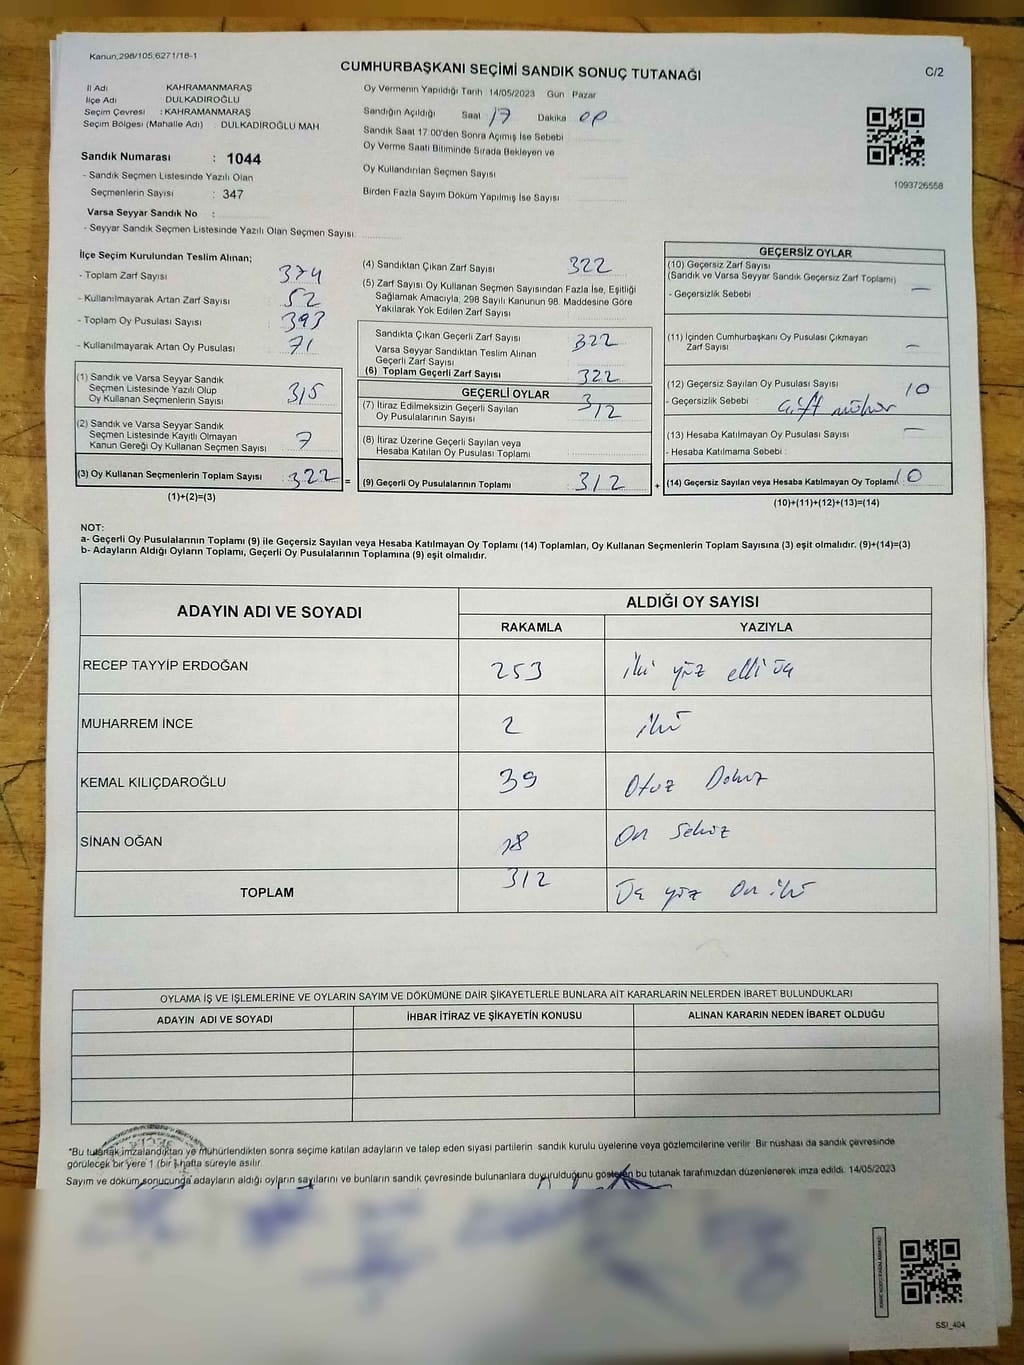 Kanun;298/105;6271/18-1
CUMHURBAŞKANI SEÇİMİ SANDIK SONUÇ TUTANAĞI
C/2
İl Adı KAHRAMANMARAŞ
İlçe Adı DULKADİROĞLU
Seçim Çevresi : KAHRAMANMARAŞ
Seçim Bölgesi (Mahalle Adı) : DULKADİROĞLU MAH
Sandık Numarası : 1044
- Sandık Seçmen Listesinde Yazılı Olan
Seçmenlerin Sayısı : 347
Varsa Seyyar Sandık No :
- Seyyar Sandık Seçmen Listesinde Yazılı Olan Seçmen Sayısı:
Oy Vermenin Yapıldığı Tarih 14/05/2023 Gün Pazar
Sandığın Açıldığı Saat 17 Dakika 00
Sandık Saat 17.00'den Sonra Açımış İse Sebebi
Oy Verme Saati Bitiminde Sırada Bekleyen ve
Oy Kullandırılan Seçmen Sayısı
Birden Fazla Sayım Döküm Yapılmış İse Sayısı
1093726558
İlçe Seçim Kurulundan Teslim Alınan;
- Toplam Zarf Sayısı 374
- Kullanılmayarak Artan Zarf Sayısı 52
- Toplam Oy Pusulası Sayısı 393
- Kullanılmayarak Artan Oy Pusulası 71
(1) Sandık ve Varsa Seyyar Sandık
Seçmen Listesinde Yazılı Olup
Oy Kullanan Seçmenlerin Sayısı 315
(2) Sandık ve Varsa Seyyar Sandık
Seçmen Listesinde Kayıtlı Olmayan
Kanun Gereği Oy Kullanan Seçmen Sayısı 7
(3) Oy Kullanan Seçmenlerin Toplam Sayısı : 322 =
(1)+(2)=(3)
(4) Sandıktan Çıkan Zarf Sayısı 322
(5) Zarf Sayısı Oy Kullanan Seçmen Sayısından Fazla İse, Eşitliği
Sağlamak Amacıyla, 298 Sayılı Kanunun 98. Maddesine Göre
Yakılarak Yok Edilen Zarf Sayısı
Sandıkta Çıkan Geçerli Zarf Sayısı 322
Varsa Seyyar Sandıktan Teslim Alınan
Geçerli Zarf Sayısı
(6) Toplam Geçerli Zarf Sayısı 322
GEÇERLİ OYLAR
(7) İtiraz Edilmeksizin Geçerli Sayılan
Oy Pusulalarının Sayısı 312
(8) İtiraz Üzerine Geçerli Sayılan veya
Hesaba Katılan Oy Pusulası Toplamı
(9) Geçerli Oy Pusulalarının Toplamı 312 +
GEÇERSİZ OYLAR
(10) Geçersiz Zarf Sayısı
(Sandık ve Varsa Seyyar Sandık Geçersiz Zarf Toplamı) —
- Geçersizlik Sebebi
(11) İçinden Cumhurbaşkanı Oy Pusulası Çıkmayan
Zarf Sayısı —
(12) Geçersiz Sayılan Oy Pusulası Sayısı 10
- Geçersizlik Sebebi : çift mühür
(13) Hesaba Katılmayan Oy Pusulası Sayısı —
- Hesaba Katılmama Sebebi :
(14) Geçersiz Sayılan veya Hesaba Katılmayan Oy Toplamı 10
(10)+(11)+(12)+(13)=(14)
NOT:
a- Geçerli Oy Pusulalarının Toplamı (9) ile Geçersiz Sayılan veya Hesaba Katılmayan Oy Toplamı (14) Toplamları, Oy Kullanan Seçmenlerin Toplam Sayısına (3) eşit olmalıdır. (9)+(14)=(3)
b- Adayların Aldığı Oyların Toplamı, Geçerli Oy Pusulalarının Toplamına (9) eşit olmalıdır.
ADAYIN ADI VE SOYADI ALDIĞI OY SAYISI
RAKAMLA YAZIYLA
RECEP TAYYİP ERDOĞAN 253 iki yüz elli üç
MUHARREM İNCE 2 iki
KEMAL KILIÇDAROĞLU 39 Otuz Dokuz
SİNAN OĞAN 18 On Sekiz
TOPLAM 312 Üç yüz On iki
OYLAMA İŞ VE İŞLEMLERİNE VE OYLARIN SAYIM VE DÖKÜMÜNE DAİR ŞİKAYETLERLE BUNLARA AİT KARARLARIN NELERDEN İBARET BULUNDUKLARI
ADAYIN ADI VE SOYADI İHBAR İTİRAZ VE ŞİKAYETİN KONUSU ALINAN KARARIN NEDEN İBARET OLDUĞU
*Bu tutanak imzalandıktan ve mühürlendikten sonra seçime katılan adayların ve talep eden siyasi partilerin sandık kurulu üyelerine veya gözlemcilerine verilir. Bir nüshası da sandık çevresinde
görülecek bir yere 1 (bir) hafta süreyle asılır.
Sayım ve döküm sonucunda adayların aldığı oyların sayılarını ve bunların sandık çevresinde bulunanlara duyurulduğunu gösteren bu tutanak tarafımızdan düzenlenerek imza edildi. 14/05/2023
SSI_404